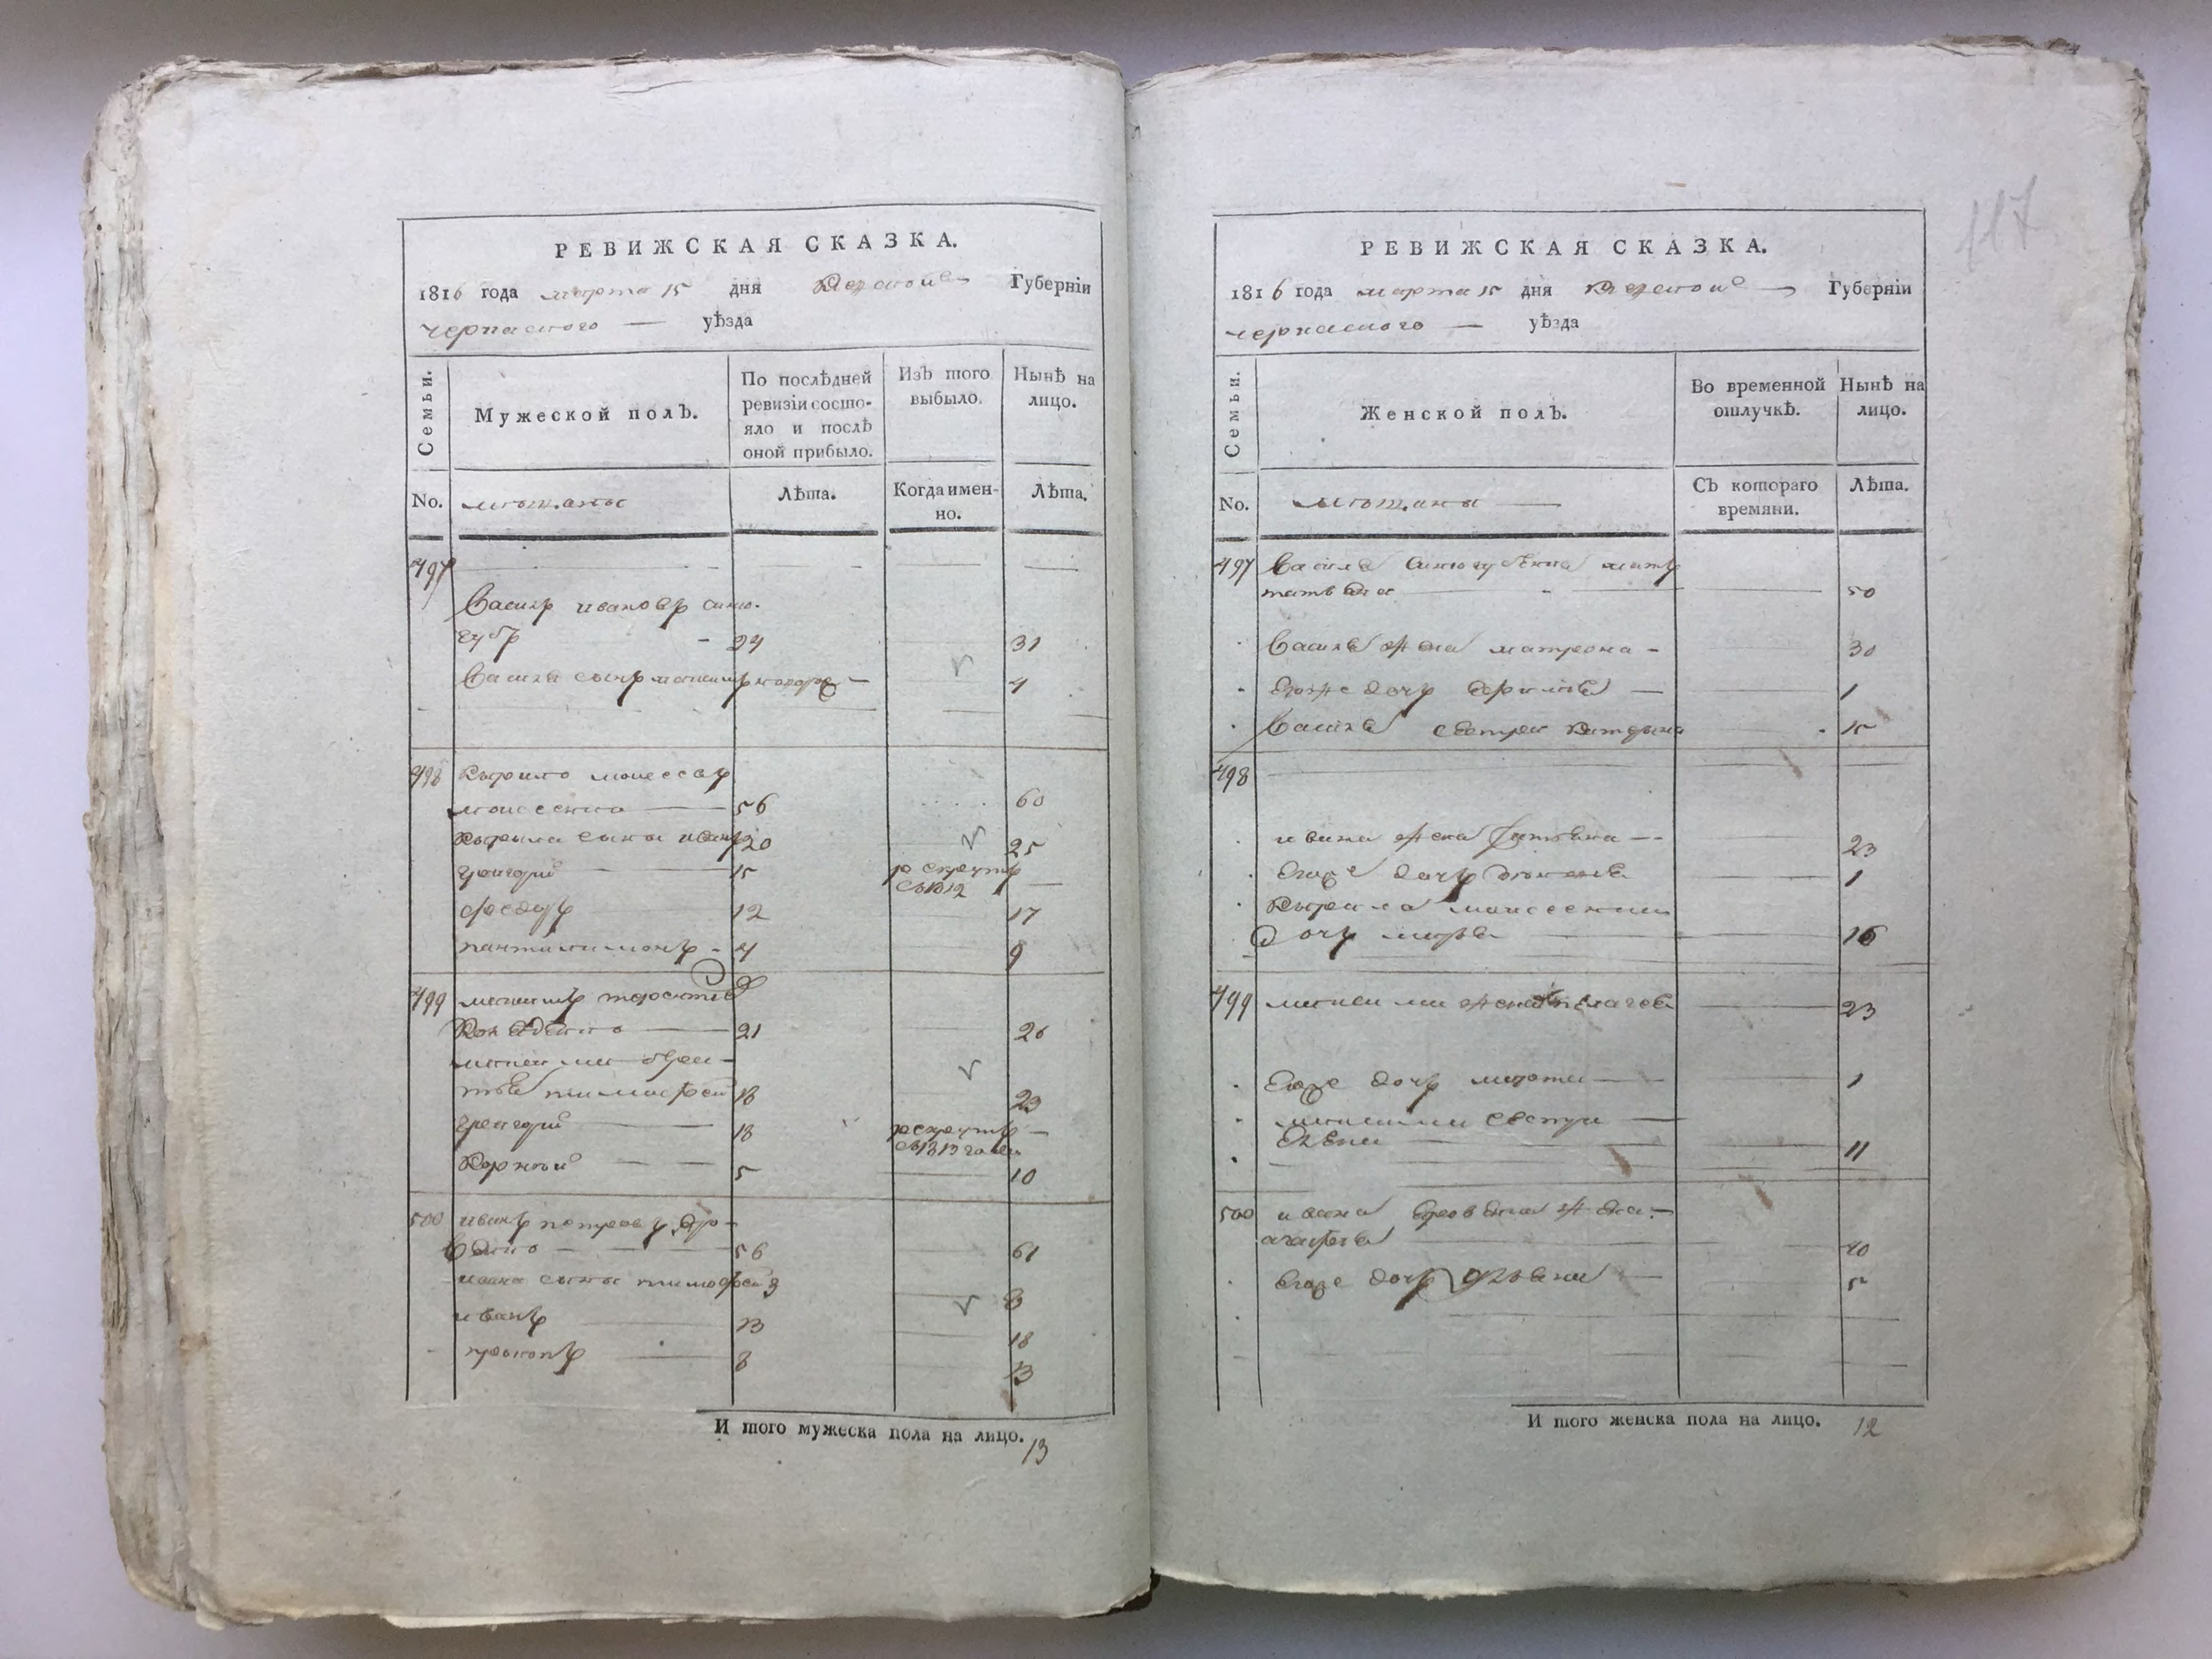 РЕВИЖСКАЯ СКАЗКА.
1816 года марта 15 дня Киевской Губерніи
черкаского уѣзда
Семьи.
Мужеской полЪ.
По послѣдней
ревизіи состо-
яло и послѣ
оной прибыло.
ИзЪ того
выбыло.
Нынѣ на
лицо.
No. мѣщане
Лѣта.
Когда имен-
но.
Лѣта.
497
Василь ивановъ сино-
губъ 24 31
Василя сынъ максимъ 4
498 Кирило моисеевъ
моисеенко 56 60
Кирила сыны иванъ 20 25
григорий 15 рекрутъ
въ 1812
федоръ 12 17
пантилимонъ 4 9
499 максимъ терентьев
21 26
максима бра-
тья тимофей 18 23
григорий 18 рекрутъ
въ 1813 годе
Корней 5 10
500 иванъ петровъ
56 61
ивана сыны тимофей 3 8
иванъ 13 18
прокопъ 8 13
И того мужеска пола на лицо. 13
117
РЕВИЖСКАЯ СКАЗКА.
1816 года марта 15 дня Киевской Губерніи
черкаского уѣзда
Семьи.
Женской полЪ.
Во временной
отлучкѣ.
Нынѣ на
лицо.
No. мѣщане
СЪ котораго
времяни.
Лѣта.
497 Василя синогубенка мать
татьяна 50
Василя жена матрона 30
Его же дочь 1
Василя сестра 15
498
ивана жена 23
Его же дочь 1
Кирила моисеенка
дочь 16
499 максима жена пелагея 23
Его же дочь марта 1
максима сестра
11
500 ивана жена
агафия 40
Его же дочь 5
И того женска пола на лицо. 12